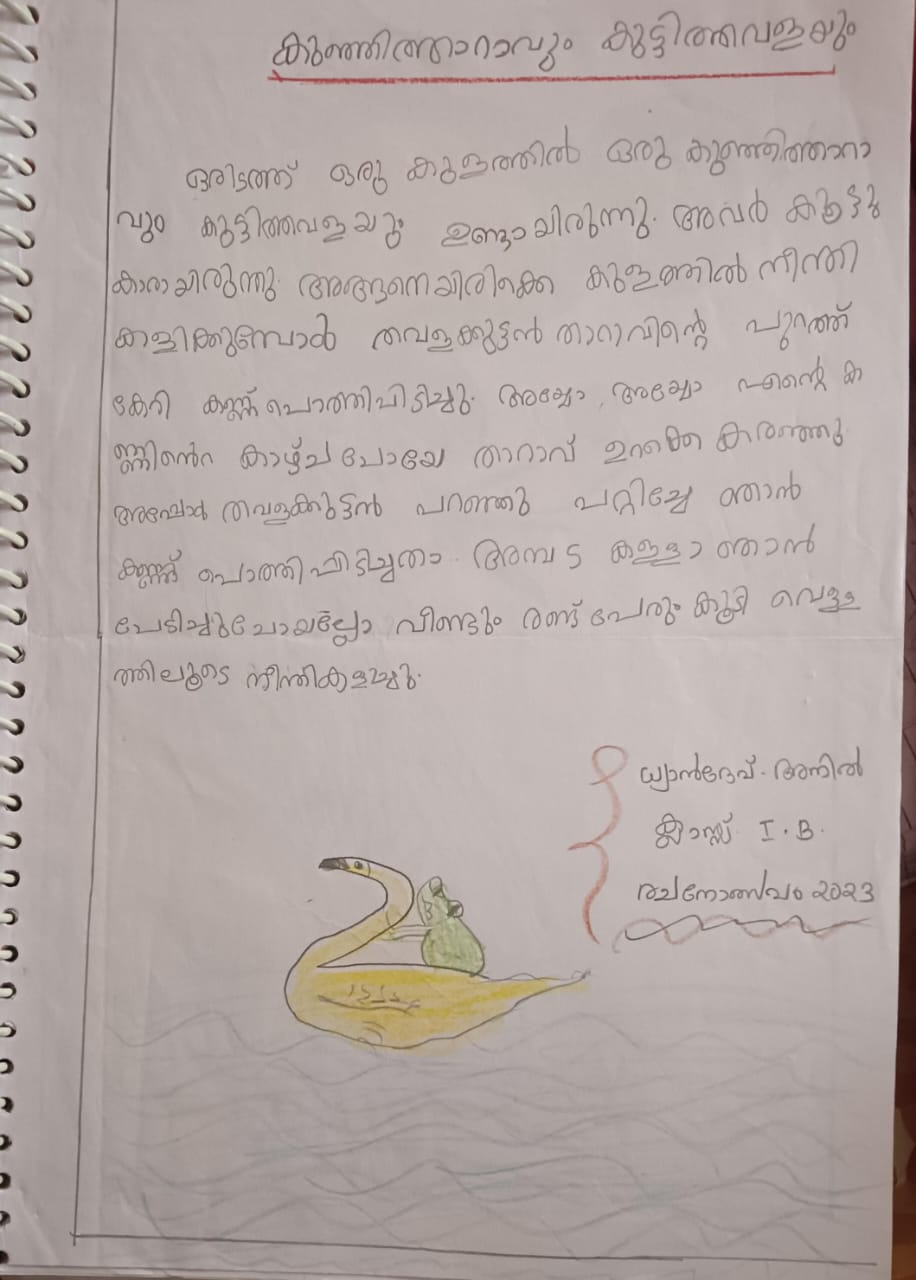 കുഞ്ഞിത്താറാവും കുട്ടിത്തവളയും
ഒരിടത്ത് ഒരു കുളത്തിൽ ഒരു കുഞ്ഞിത്താറാ
വും കുട്ടിത്തവളയും ഉണ്ടായിരുന്നു. അവർ കൂട്ടു
കാരായിരുന്നു. അങ്ങനെയിരിക്കെ കുളത്തിൽ നീന്തി
കളിക്കുമ്പോൾ തവളക്കുട്ടൻ താറാവിന്റെ പുറത്ത്
കേറി കണ്ണ് പൊത്തിപിടിച്ചു. അയ്യോ, അയ്യോ എന്റെ ക
ണ്ണിൻെറ കാഴ്ച പോയേ താറാവ് ഉറക്കെ കരഞ്ഞു.
അപ്പോൾ തവളക്കുട്ടൻ പറഞ്ഞു പറ്റിച്ചേ ഞാൻ
കണ്ണ് പൊത്തിപിടിച്ചതാ. അമ്പട കള്ളാ ഞാൻ
പേടിച്ചുപോയല്ലോ വീണ്ടും രണ്ട് പേരും കൂടി വെള്ള
ത്തിലൂടെ നീന്തികളച്ചു.
ധ്യാൻദേവ്. അനിൽ
ക്ലാസ്സ് I.B.
രചനോത്സവം 2023